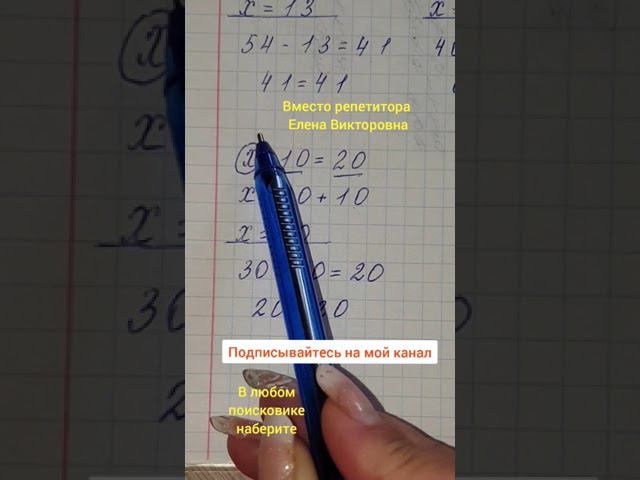 x = 13
54 - 13 = 41
41 = 41
Вместо репетитора
Елена Викторовна
x 10 = 20
x 0 + 10
x =
30 0 = 20
20
Подписывайтесь на мой канал
В любом
поисковике
наберите